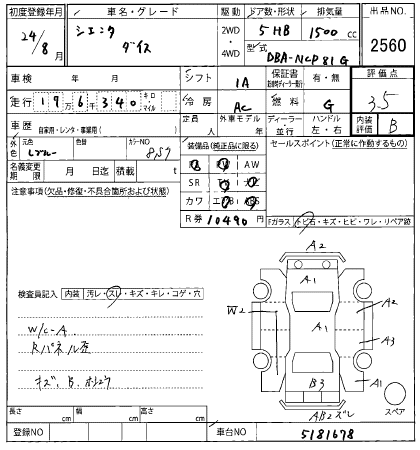 初度登録年月 車名・グレード 駆動 ドア数・形状 排気量 出品NO.
24/8月 シエンタ ダイス 2WD 4WD 5 HB 1500 cc 2560
型式 DBA-NCP81G
車検 年 月 シフト IA 保証書 有・無 評価点
走行 17万6千340 キロ・マイル 冷房 AC 燃料 G 3.5
車歴 自家用・レンタ・事業用( ) 定員 人 外車モデル 年 ディーラー・並行 ハンドル 左・右 内装評価 B
外色 元色 色替 カラーNO 857 装備品(純正品に限る) セールスポイント(正常に作動するもの)
名義変更期限 月 日迄 積載 t AW
注意事項(欠品・修復・不具合箇所および状態) SR
カワ
R券 10490円 Fガラス トビ石・キズ・ヒビ・ワレ・リペア跡
A2
A1
検査員記入 内装 汚レ・スレ・キズ・キレ・コゲ・穴
W2 A2
A1
W/C-A A3
Rパネル歪
キズ、B、ホシュウ B3 A1
スペア
AB2 ズレ
長さ cm 幅 cm 高さ cm
登録NO 車台NO 5181678